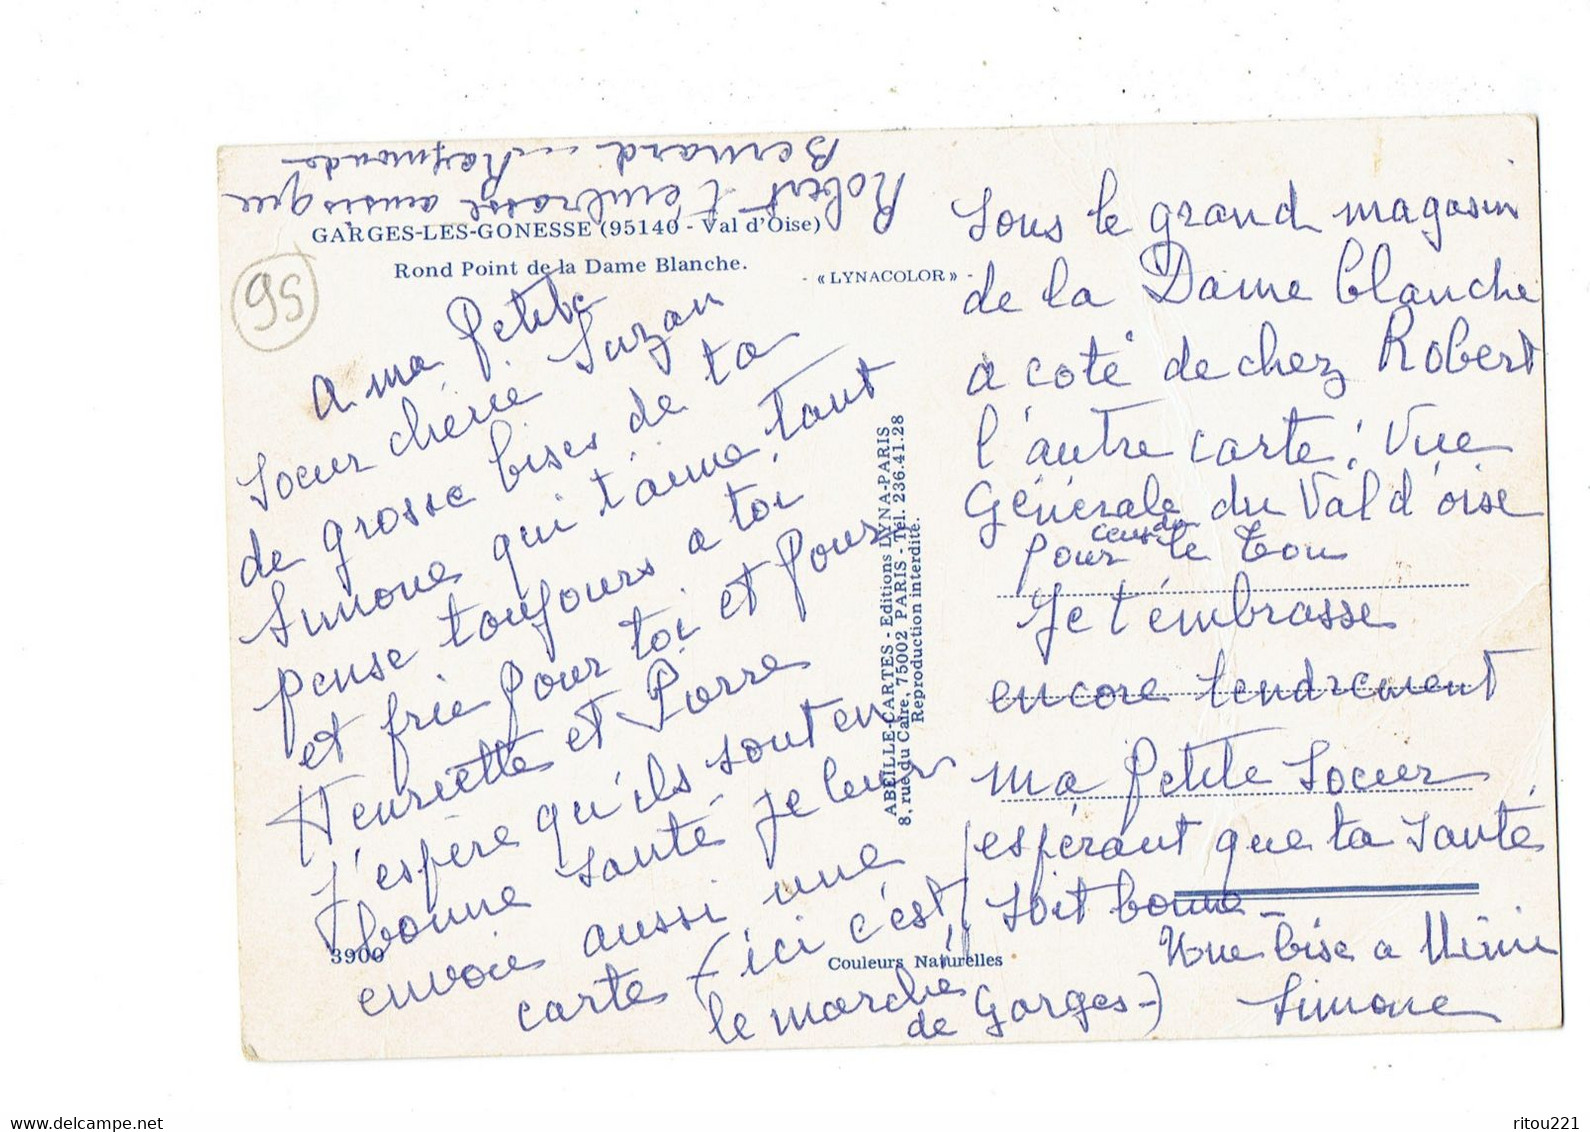 Robert t'embrasse aussi que
Bernard - Raymonde
GARGES-LES-GONESSE (95140 - Val d'Oise)
Rond Point de la Dame Blanche.
- «LYNACOLOR» -
95
a ma Petite
Soeur chérie Suzan
de grosse bises de ta
Simone qui t'aime tant
pense toujours a toi
et prie pour toi et pour
Henriette et Pierre
J'espère qu'ils sont en
bonne santé je leur
envoie aussi une
carte (ici c'est
le marché
de Garges-)
3900
Couleurs Naturelles
ABEILLE-CARTES - Editions LYNA-PARIS
8, rue du Caire, 75002 PARIS - Tél. 236.41.28
Reproduction interdite.
Sous le grand magasin
de la Dame blanche
a coté de chez Robert
l'autre carte: Vue
Générale du Val d'oise
pour le
Je t'embrasse
encore tendrement
ma Petite Soeur
espérant que ta santé
soit bonne -
Une bise a Mimi
Simone
ritou221